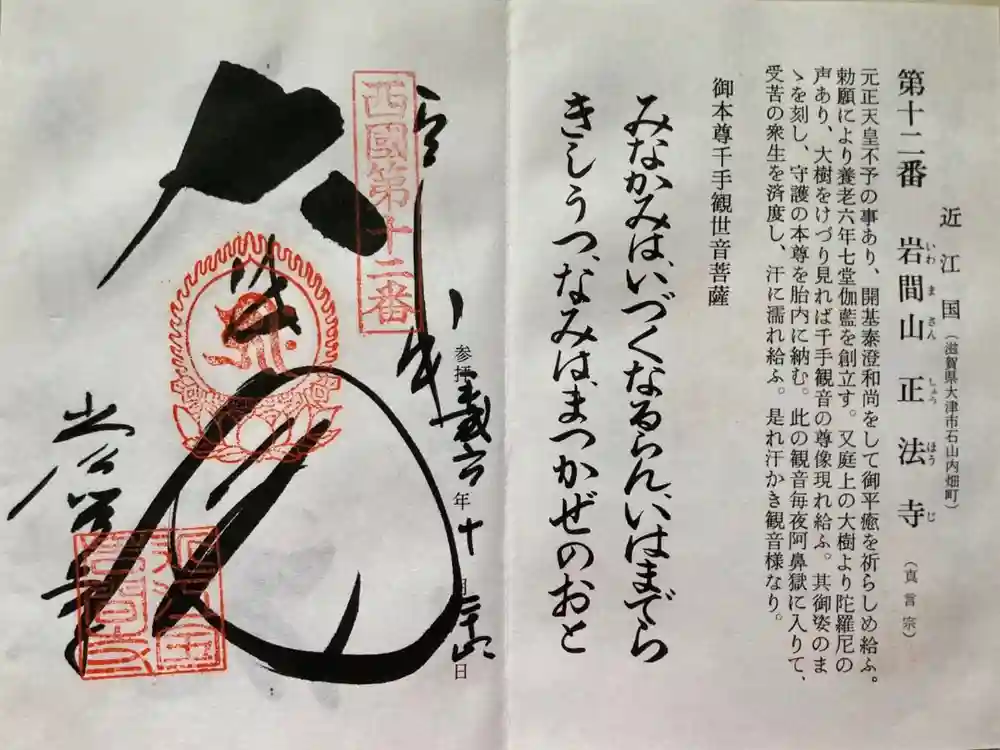 近江国(滋賀県大津市石山内畑町)
第十二番 岩間山 正法寺(真言宗)
いわ ま さん しょう ほう じ
元正天皇不予の事あり、開基泰澄和尚をして御平癒を祈らしめ給ふ。
勅願により養老六年七堂伽藍を創立す。又庭上の大樹より陀羅尼の
声あり、大樹をけづり見れば千手観音の尊像現れ給ふ。其御姿のま
ゝを刻し、守護の本尊を胎内に納む。此の観音毎夜阿鼻獄に入りて、
受苦の衆生を済度し、汗に濡れ給ふ。是れ汗かき観音様なり。
御本尊千手観世音菩薩
みなかみは、いづくなるらん、いはまでら
きしうつ、なみは、まつかぜのおと
西國第十二番
参拝 年十月 日